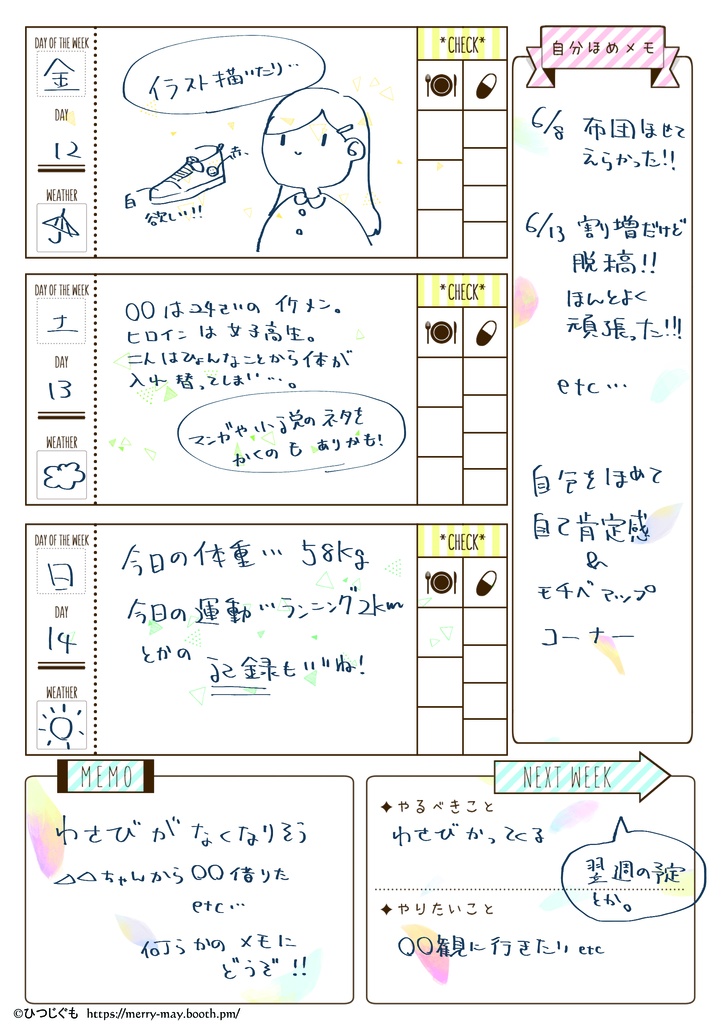 DAY OF THE WEEK
金
DAY
12
WEATHER
イラスト描いたり…
赤、
白
欲しい!!
*CHECK*
DAY OF THE WEEK
土
DAY
13
WEATHER
〇〇はユキさいの イケメン。
ヒロインは女子高生。
二人はひょんなことから体が
入れ替ってしまい…。
マンガや小説のネタを
かくのも ありかも!
*CHECK*
DAY OF THE WEEK
日
DAY
14
WEATHER
今日の体重… 58kg
今日の運動…ランニング2km
とかの
記録もいいね!
*CHECK*
自分ほめメモ
6/8 布団ほせて
えらかった!!
6/13 割り増だけど
脱稿!!
ほんとよく
頑張った!!!
etc…
自分をほめて
自己肯定感
&
モチベアップ
コーナー
MEMO
わさびがなくなりそう
△△ちゃんから〇〇借りた
etc…
何らかのメモに
どうぞ!!
NEXT WEEK
✦やるべきこと
わさびかってくる
翌週の予定
とか。
✦やりたいこと
〇〇観に行きたい etc
©ひつじぐも https://merry-may.booth.pm/